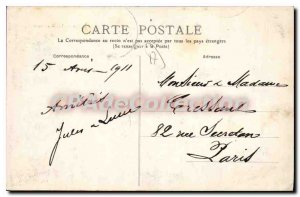 CARTE POSTALE
La Correspondance au recto n'est pas acceptée par tous les pays étrangers
(Se renseigner à la Poste)
Correspondance
Adresse
15 Avril 1911
Monsieur & Madame
Amitiés
Jules
82 rue
Paris